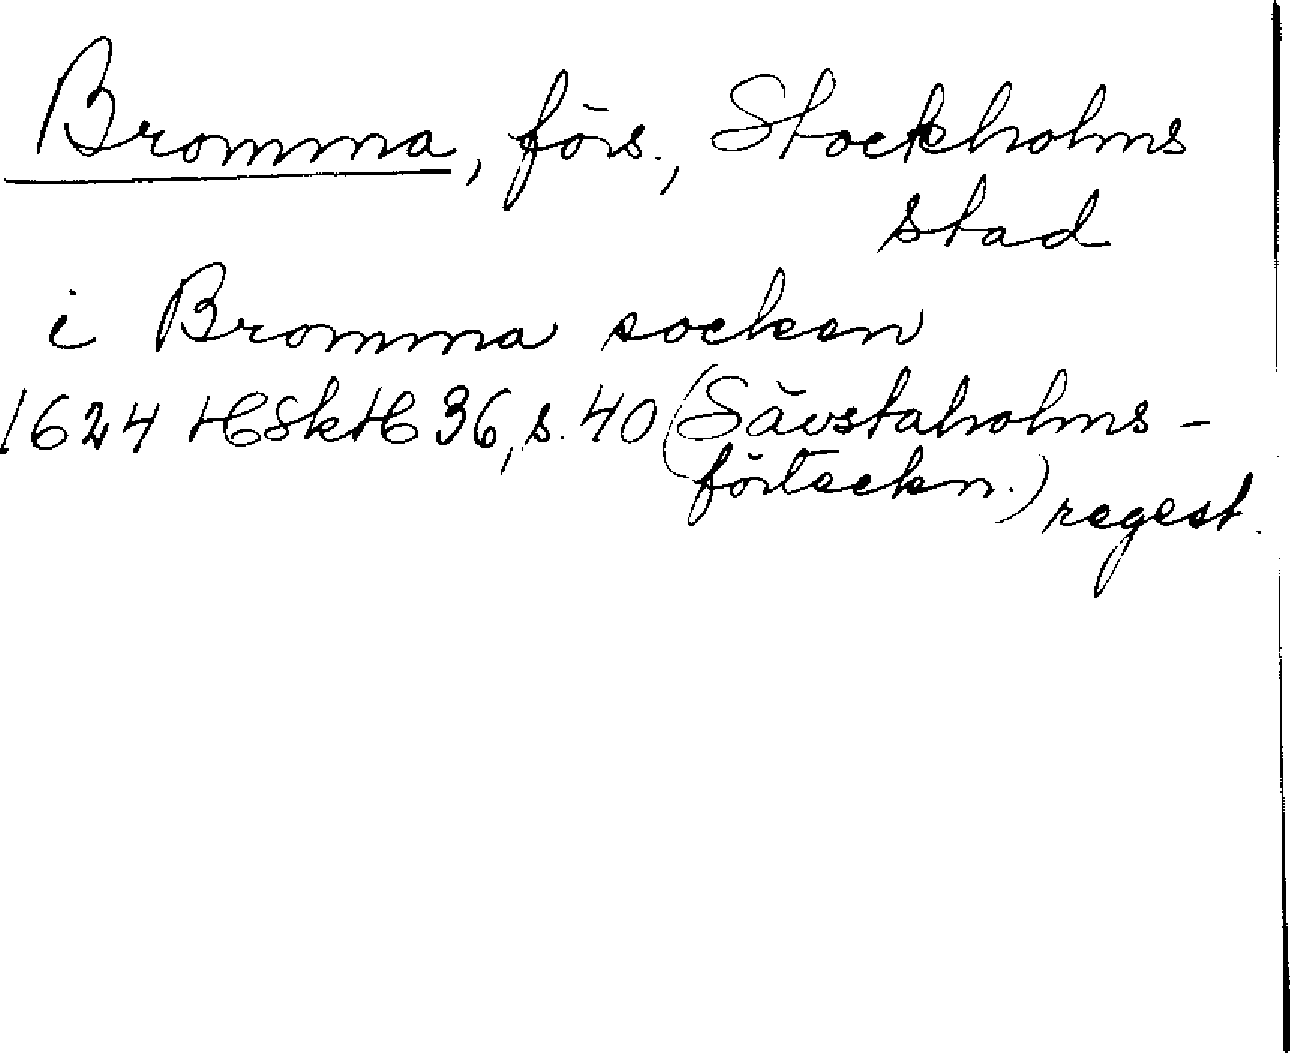 Bromma, förs., Stockholms
stad
i Bromma socken
1624 HSkH 36, s. 40 (Sävstaholms-
förteckn.) regest.